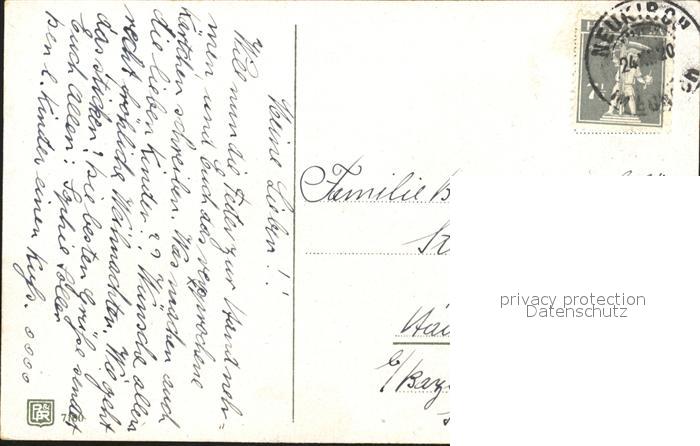 Meine Lieben!!
Will nun die Feder zur Hand neh=
men und Euch das versprochene
Kärtchen schreiben. Was machen auch
die lieben Kinder?? Wünsche allen
recht fröhliche Weihnachten. Wie geht
das sticken? Die besten Grüße sendet
Euch allen: Sophie
den l. Kinder einen Kuss. oooo
NEUKIRCH
24
20
Familie B
Ha
b/Baz
privacy protection
Datenschutz